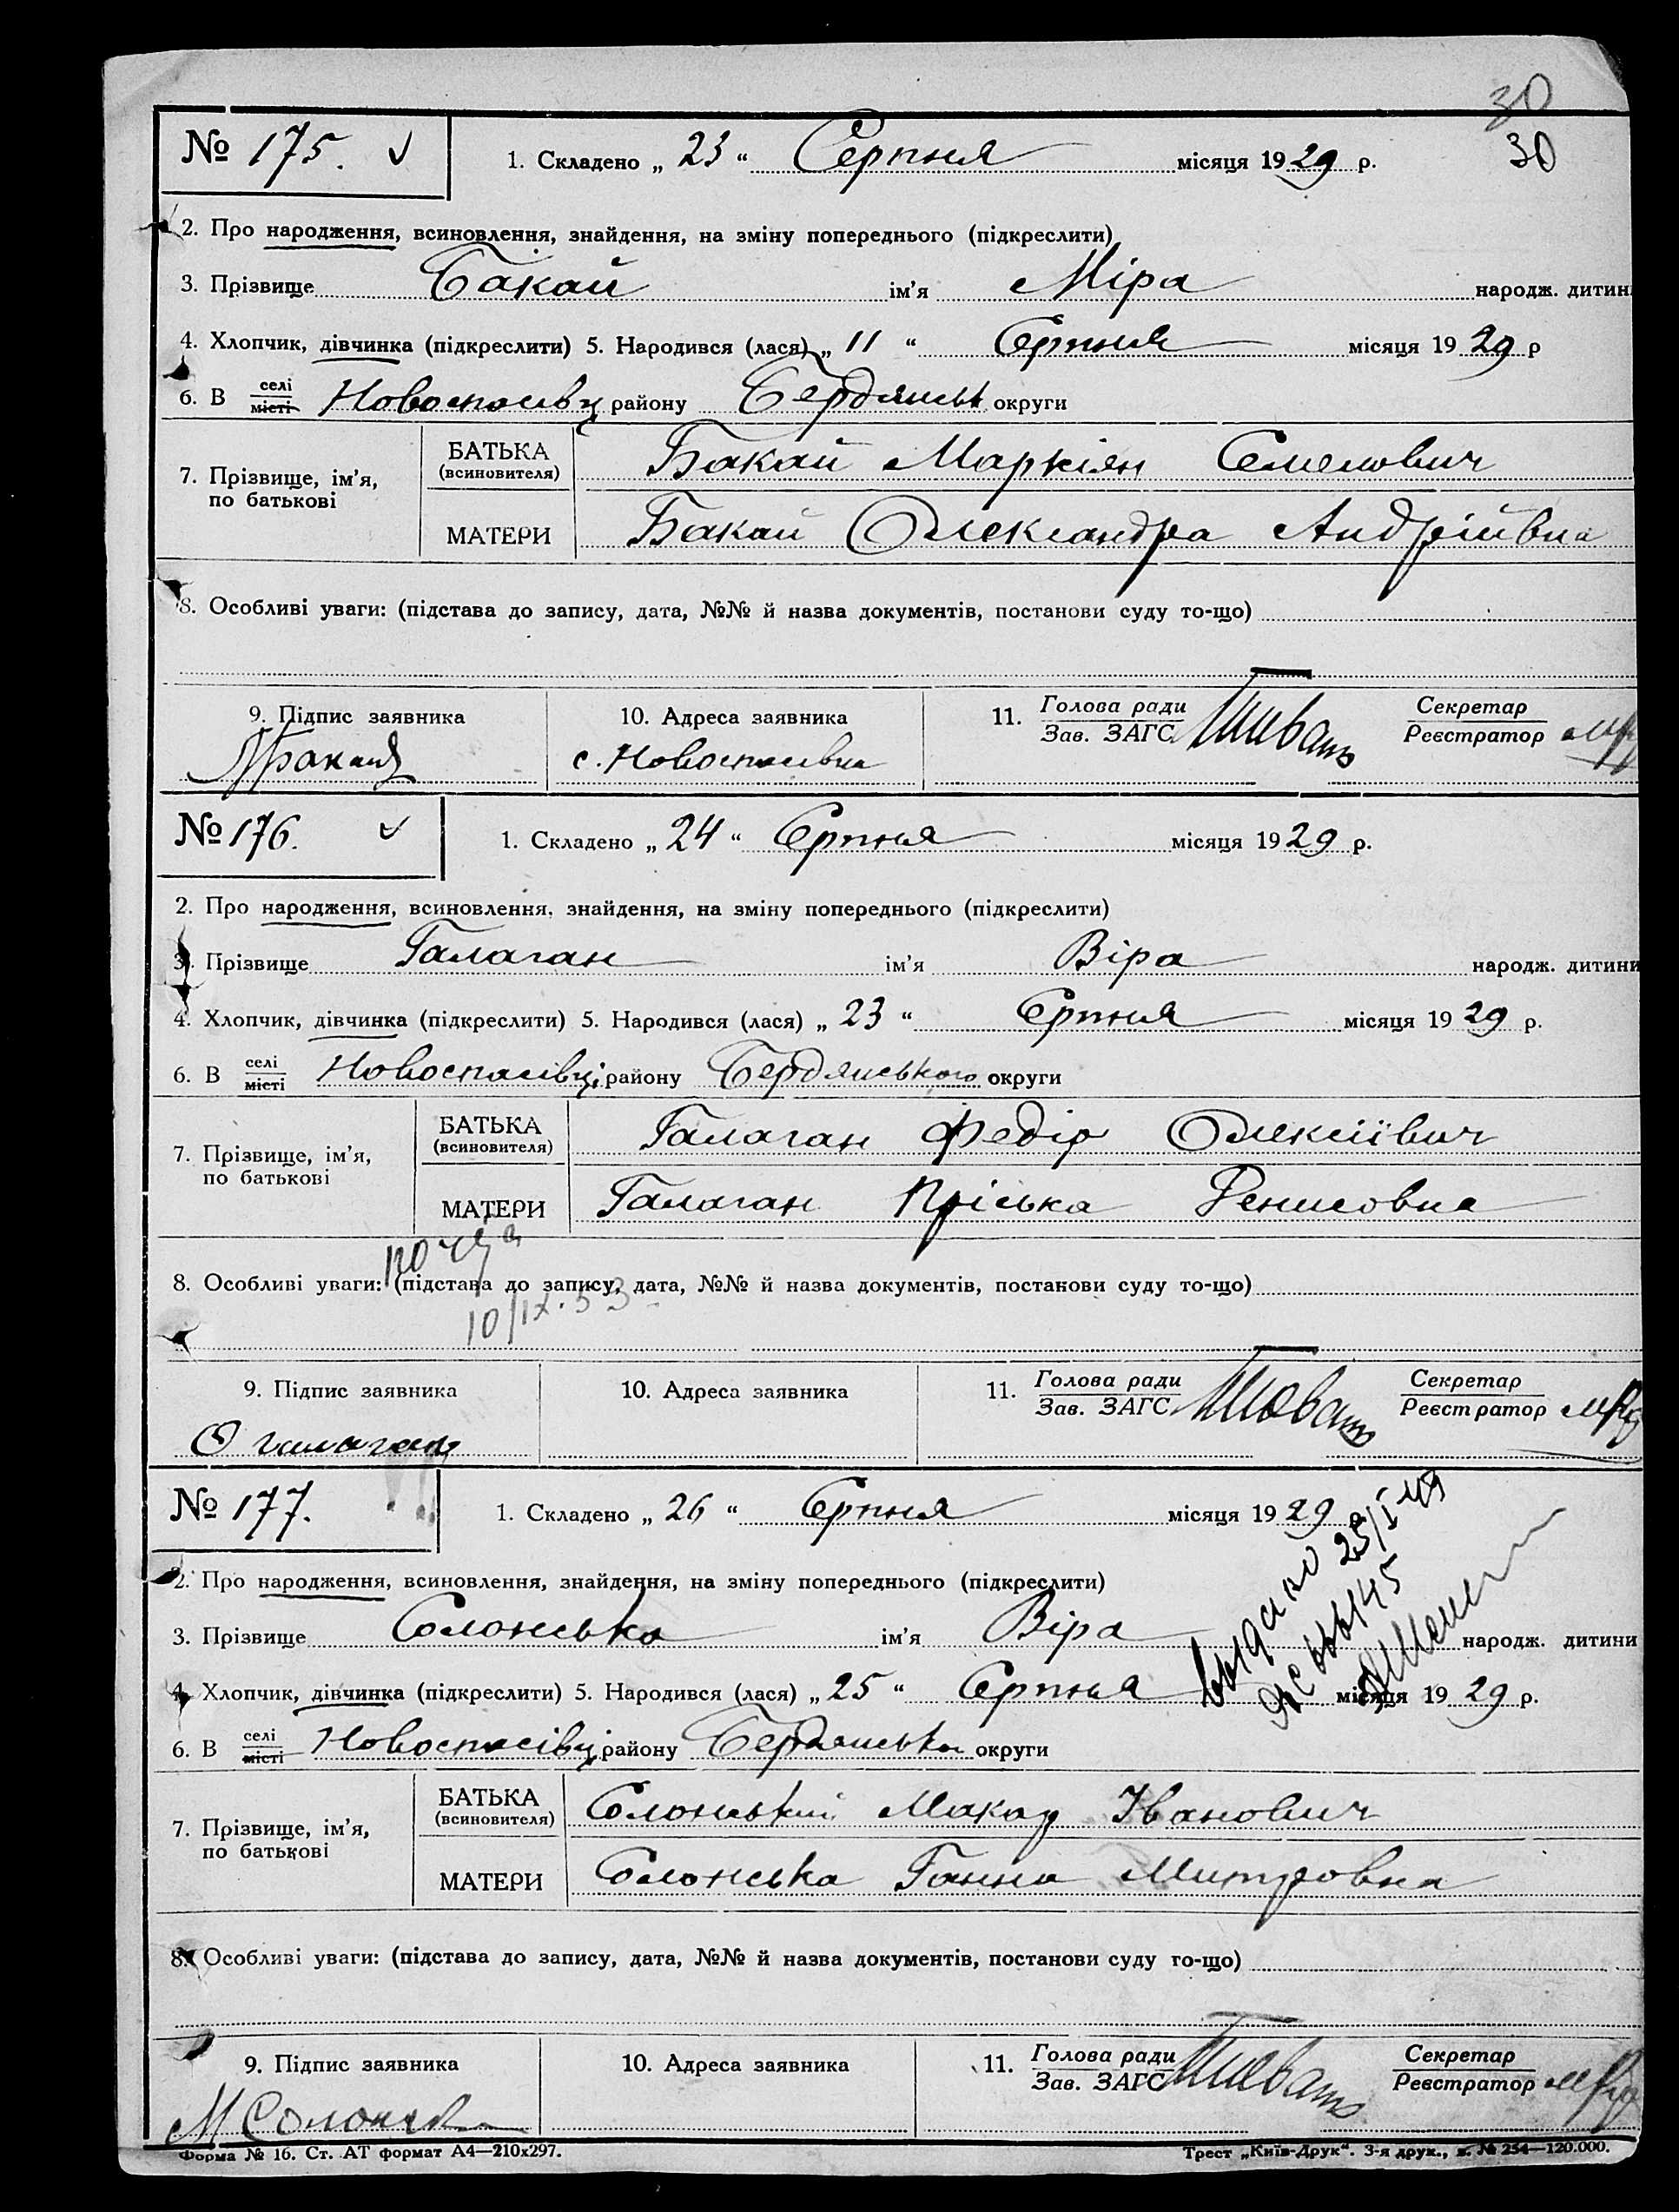 30
30
№ 175.
1. Складено „ 23 “ Серпня місяця 1929 р.
2. Про народження, всиновлення, знайдення, на зміну попереднього (підкреслити)
3. Прізвище Бакай ім'я Міра народж. дитин
4. Хлопчик, дівчинка (підкреслити) 5. Народився (лася) „ 11 “ Серпня місяця 1929 р
6. В селі місті Новоспасівці району Бердянськ округи
7. Прізвище, ім'я, по батькові
БАТЬКА (всиновителя) Бакай Маркіян Семенович
МАТЕРИ Бакай Олександра Андріївна
8. Особливі уваги: (підстава до запису, дата, №№ й назва документів, постанови суду то-що)
9. Підпис заявника 10. Адреса заявника 11. Голова ради Зав. ЗАГС Секретар Реєстратор
с. Новоспасівка
№ 176.
1. Складено „ 24 “ Серпня місяця 1929 р.
2. Про народження, всиновлення, знайдення, на зміну попереднього (підкреслити)
3. Прізвище Галаган ім'я Віра народж. дитини
4. Хлопчик, дівчинка (підкреслити) 5. Народився (лася) „ 23 “ Серпня місяця 1929 р.
6. В селі місті Новоспасівці району Бердянського округи
7. Прізвище, ім'я, по батькові
БАТЬКА (всиновителя) Галаган Федір Олексіївич
МАТЕРИ Галаган Пріська Денисовна
8. Особливі уваги: (підстава до запису, дата, №№ й назва документів, постанови суду то-що)
10/IX.53
9. Підпис заявника 10. Адреса заявника 11. Голова ради Зав. ЗАГС Секретар Реєстратор
Галаган
№ 177.
1. Складено „ 26 “ Серпня місяця 1929
2. Про народження, всиновлення, знайдення, на зміну попереднього (підкреслити)
3. Прізвище Солонська ім'я Віра народж. дитини
4. Хлопчик, дівчинка (підкреслити) 5. Народився (лася) „ 25 “ Серпня місяця 1929 р.
выдано 25/I 49
6. В селі місті Новоспасівці району Бердянська округи
7. Прізвище, ім'я, по батькові
БАТЬКА (всиновителя) Солонський Макар Іванович
МАТЕРИ Солонська Ганна Митровна
8. Особливі уваги: (підстава до запису, дата, №№ й назва документів, постанови суду то-що)
9. Підпис заявника 10. Адреса заявника 11. Голова ради Зав. ЗАГС Секретар Реєстратор
М Солонск
Форма № 16. Ст. АТ формат А4—210x297.
Трест „Київ-Друк“. 3-я друк., з. № 254—120.000.